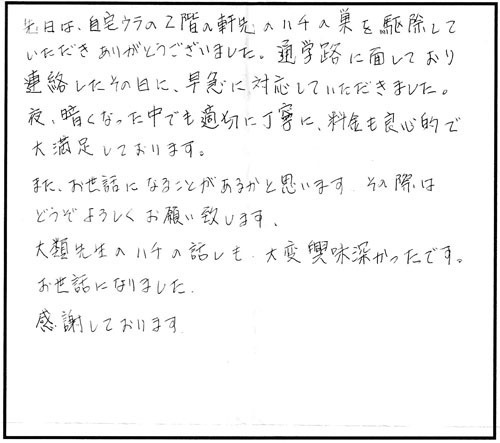 先日は、自宅ウラの2階の軒先のハチの巣を駆除して
いただきありがとうございました。通学路に面しており
連絡したその日に、早急に対応していただきました。
夜、暗くなった中でも適切に丁寧に、料金も良心的で
大満足しております。
また、お世話になることがあるかと思います その際は
どうぞよろしくお願い致します、
大類先生のハチの話しも、大変興味深かったです。
お世話になりました.
感謝しております